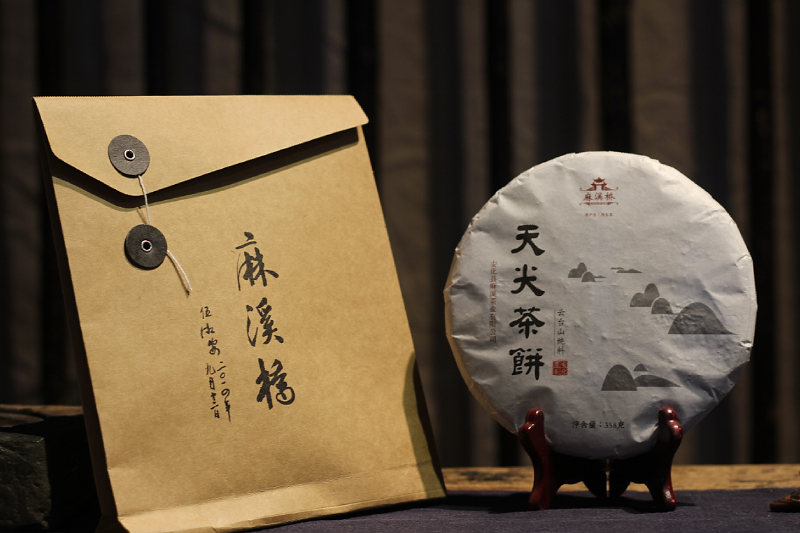 麻溪橋
二〇一四年
九月十二日
麻溪桥
天尖茶餅
安化县麻溪茶业有限公司
云台山纯料
净含量：358克